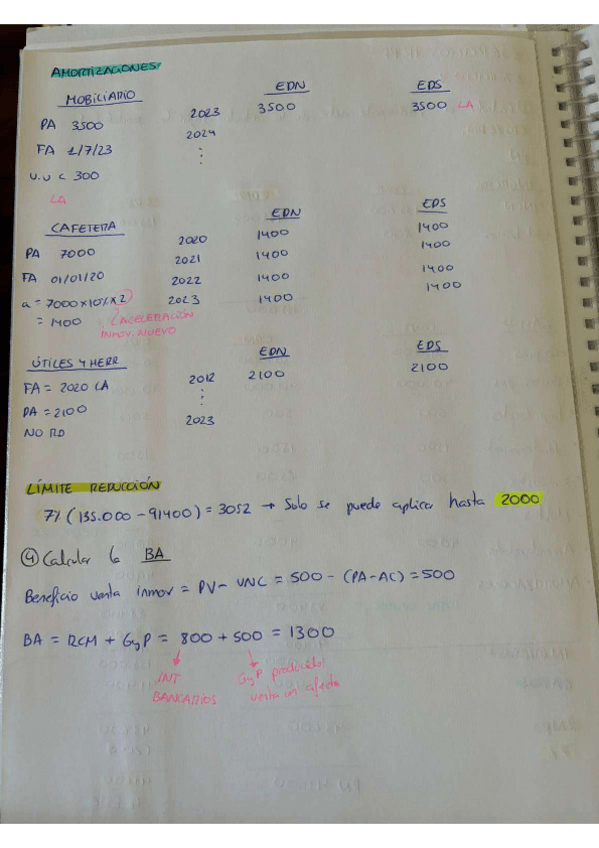 AMORTIZACIONES
MOBILIARIO EDN EDS
PA 3500 2023 3500 3500 LA
FA 1/7/23 2024
v.u < 300 ⋮
LA
CAFETERA EDN EDS
PA 7000 2020 1400 1400
FA 01/01/20 2021 1400 1400
a = 7000 x 10% x 2 2022 1400 1400
= 1400 2023 1400 1400
ACELERACIÓN
INMOV. NUEVO
ÚTILES Y HERR EDN EDS
FA = 2020 LA 2012 2100 2100
PA = 2100 ⋮
NO RD 2023
LÍMITE REDUCCIÓN
7% (135.000 - 91400) = 3052 → Solo se puede aplicar hasta 2000
④ Calcular la BA
Beneficio venta inmov = PV - VNC = 500 - (PA - AC) = 500
BA = RCM + GyP = 800 + 500 = 1300
INT
BANCARIOS
GyP
venta afecto